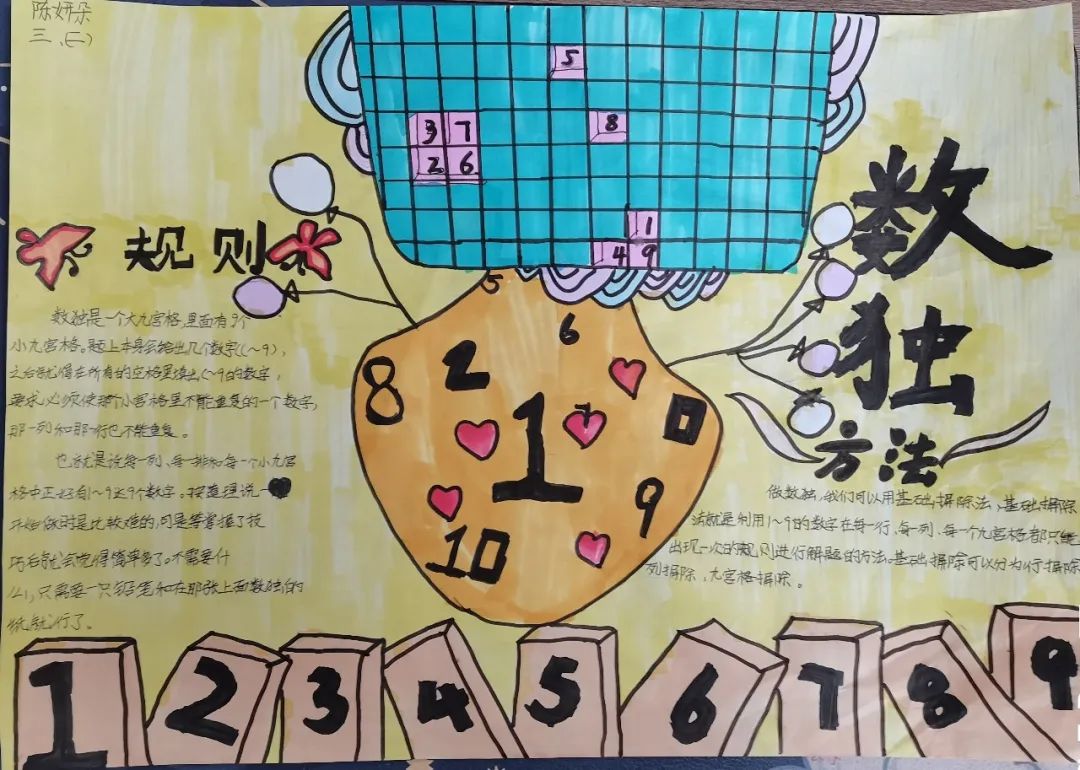 陈妍朵
三、(二)
5
3 7
8
2 6
1
4 9
规则
数独是一个大九宫格,里面有9个
小九宫格。题上本身会给出几个数字(1~9),
之后就得在所有的空格里填出1~9的数字,
要求必须使每个小宫格里不能重复的一个数字,
那一列和那一行也不能重复。
也就是说每一列、每一排和每一个小九宫
格中正好有1~9这9个数字。按道理说一
开始做时是比较难的,可是等掌握了技
巧后就会觉得简单多了。不需要什
么,只需要一只铅笔和在那张上面数独的
纸就行了。
5
6
8 2
1
0
9
10
数
独
方法
做数独,我们可以用基础摒除法,基础摒除
法就是利用1~9的数字在每一行、每一列、每一个九宫格都只能
出现一次的规则进行解题的方法。基础摒除可以分为行摒除
列摒除、九宫格摒除。
1 2 3 4 5 6 7 8 9